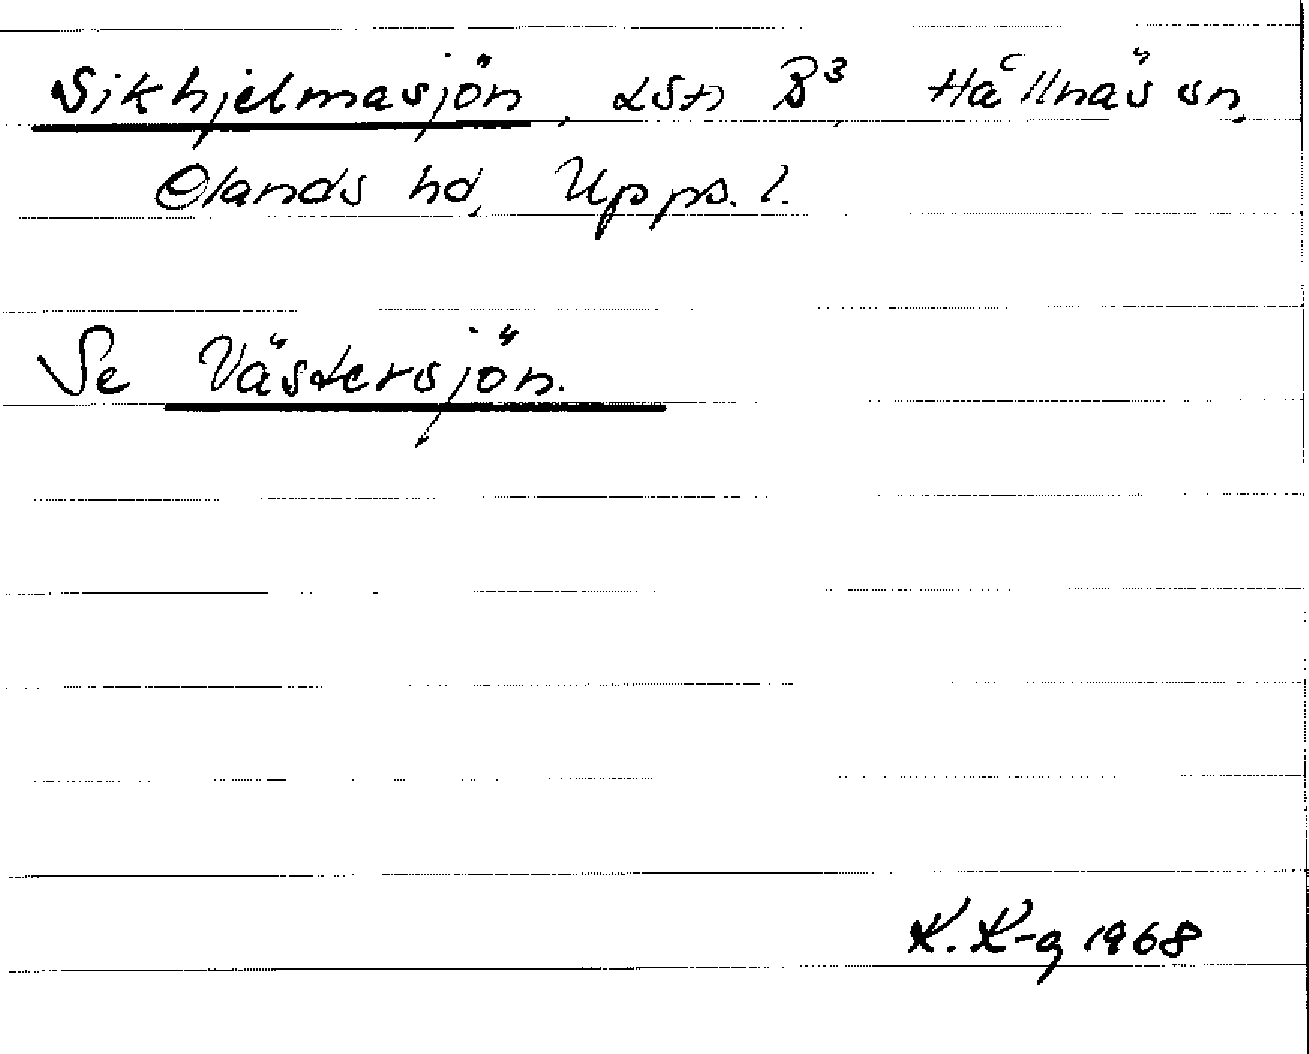 Sikhjelmasjön, LSH B³, Hållnäs sn,
Olands hd, Upps. l.
Se Västersjön.
K. K-g 1968